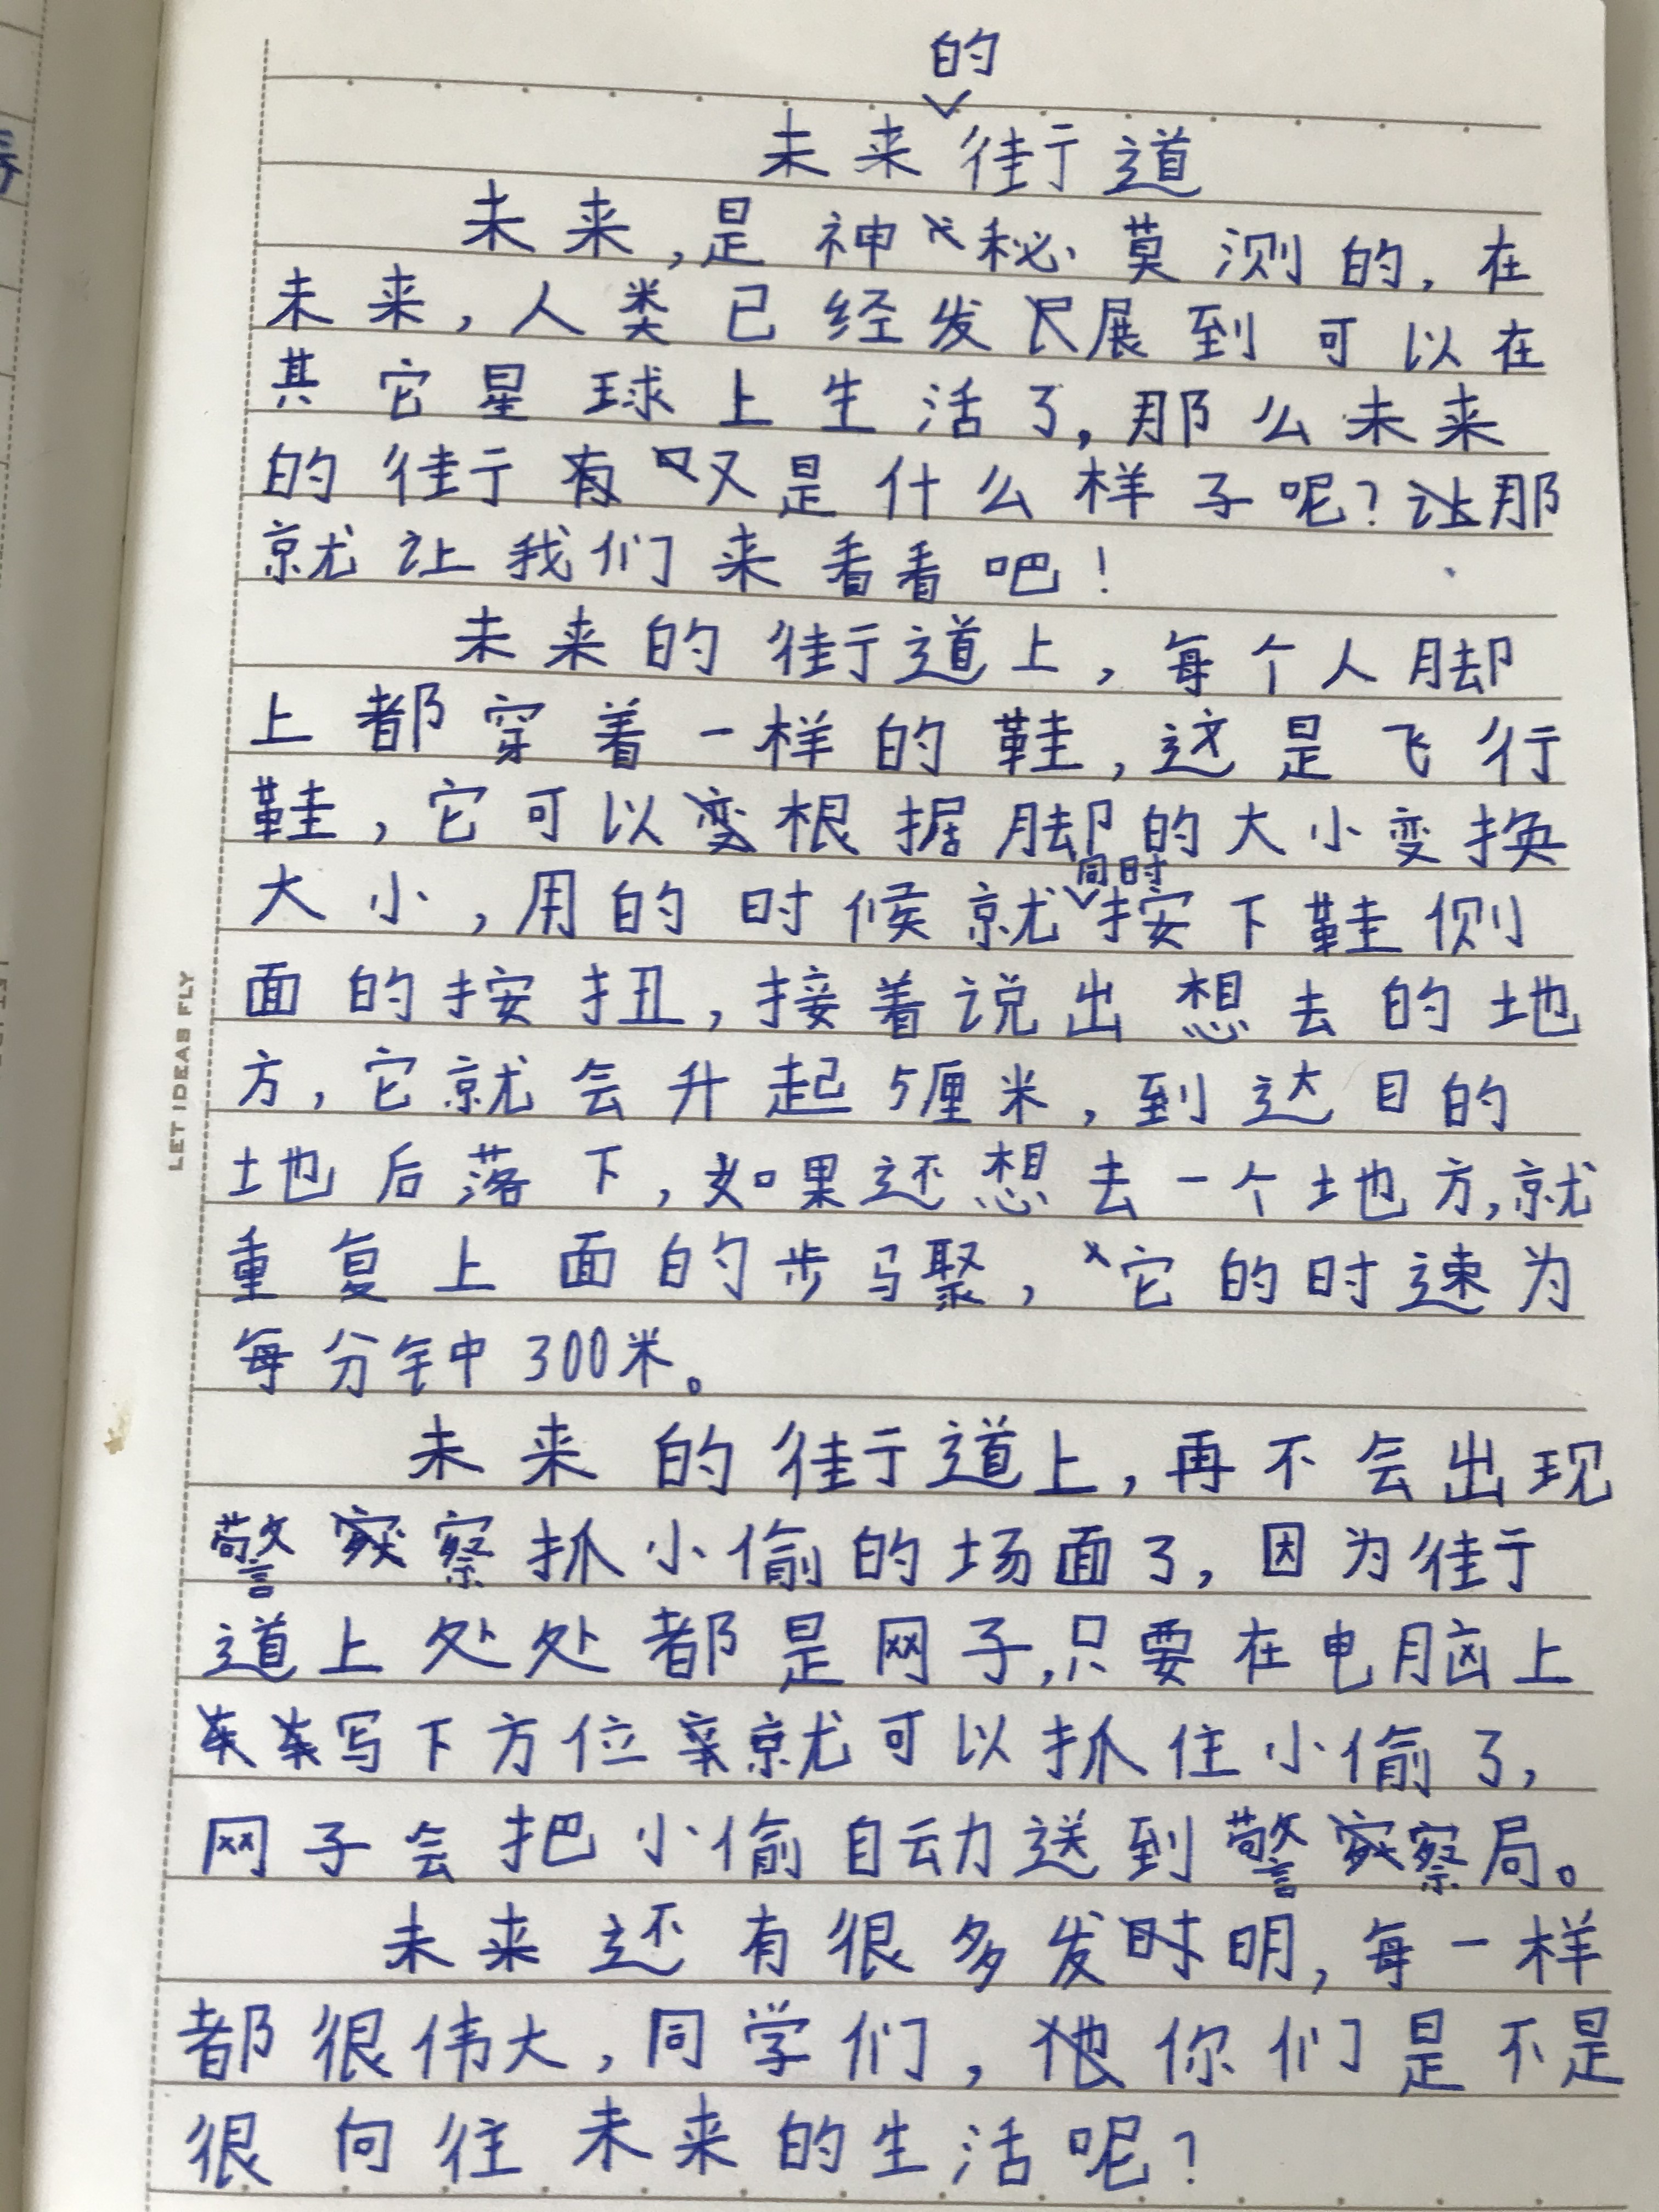 未来的街道
未来,是神秘莫测的,在
未来,人类已经发展到可以在
其它星球上生活了,那么未来
的街有又是什么样子呢?那
就让我们来看看吧!
未来的街道上,每个人脚
上都穿着一样的鞋,这是飞行
鞋,它可以根据脚的大小变换
大小,用的时候就同时按下鞋侧
面的按扭,接着说出想去的地
方,它就会升起5厘米,到达目的
地后落下,如果还想去一个地方,就
重复上面的步骤,它的时速为
每分钟300米。
未来的街道上,再不会出现
警察抓小偷的场面了,因为街
道上处处都是网子,只要在电脑上
写下方位就可以抓住小偷了,
网子会把小偷自动送到警察局。
未来还有很多发明,每一样
都很伟大,同学们,你们是不是
很向往未来的生活呢?
LET IDEAS FLY